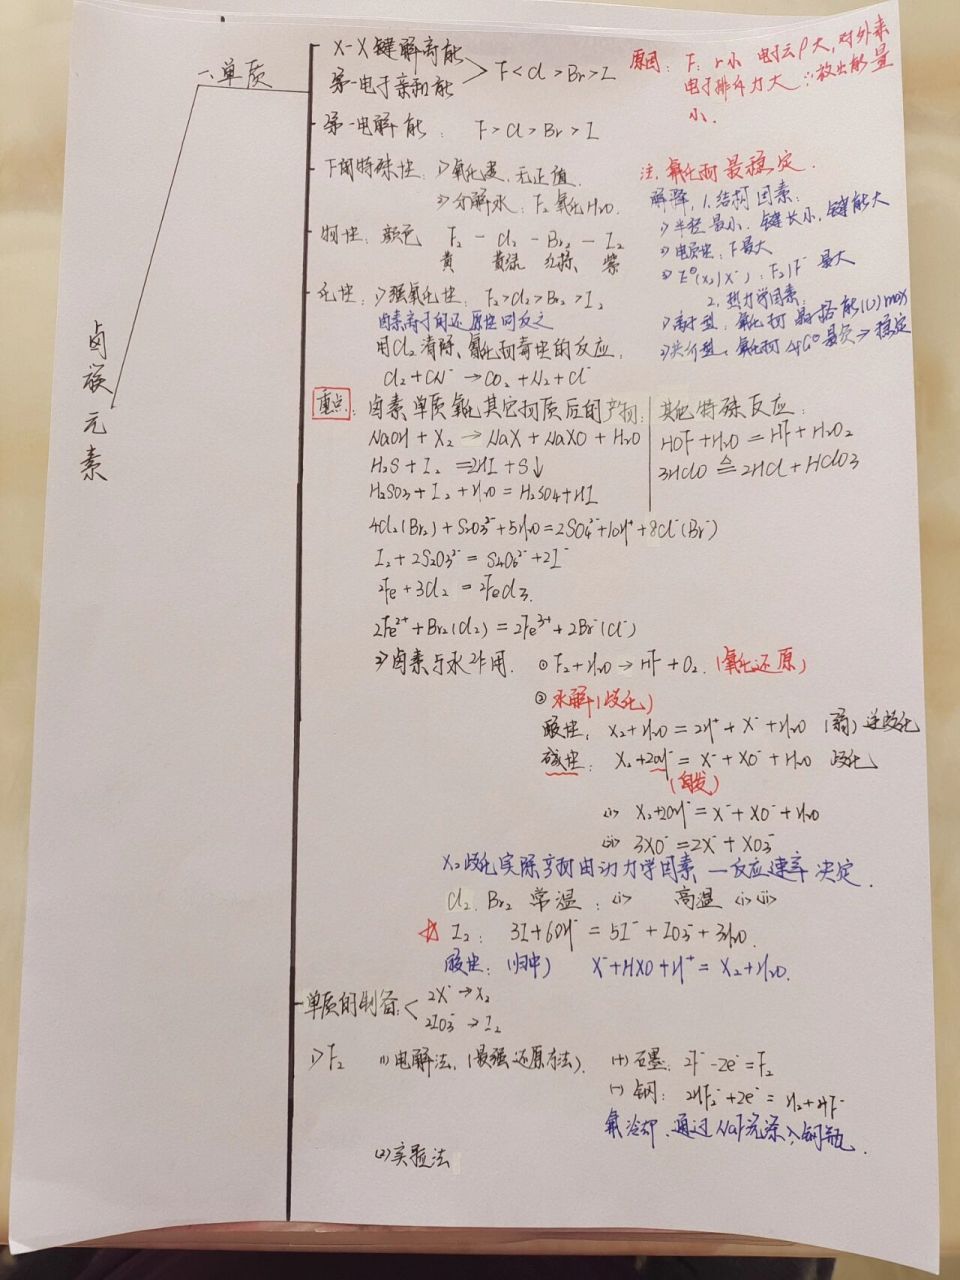 卤族元素
一.单质
X-X键解离能
第一电子亲和能
F<Cl>Br>I
原因: F: r小 电子云ρ大,对外来
电子排斥力大 ∴放出能量
小.
第一电离能: F>Cl>Br>I
F的特殊性: 1>氧化数、无正值.
2>分解水: F2氧化H2O.
注: 氟化物最稳定.
解释: 1.结构因素:
1>半径最小、键长小、键能大
2>电负性: F最大
3>E⊖(X2/X-): F2/F- 最大
2.热力学因素:
1>离子型: 氟化物 晶格能(U)max
2>共价型: 氟化物 ΔfG⊖最负⇒稳定
物性: 颜色 F2 - Cl2 - Br2 - I2
黄 黄绿 红棕、紫
化性: 1>强氧化性: F2>Cl2>Br2>I2
卤素离子的还原性则反之
用Cl2消除、氰化物毒性的反应,
Cl2+CN-→CO2+N2+Cl-
重点: 卤素单质氧化其它物质后的产物:
NaOH+X2→NaX+NaXO+H2O
H2S+I2=2HI+S↓
H2SO3+I2+H2O=H2SO4+HI
其他特殊反应:
HOF+H2O=HF+H2O2
3HClO≜2HCl+HClO3
4Cl2(Br2)+S2O3²⁻+5H2O=2SO4²⁻+10H⁺+8Cl⁻(Br⁻)
I2+2S2O3²⁻=S4O6²⁻+2I⁻
2Fe+3Cl2=2FeCl3.
2Fe²⁺+Br2(Cl2)=2Fe³⁺+2Br⁻(Cl⁻)
2>卤素与水作用. ①F2+H2O→HF+O2.(氧化还原)
②水解(歧化)
酸性: X2+H2O=2H⁺+X⁻+H2O (弱) 逆歧化
碱性: X2+2OH⁻=X⁻+XO⁻+H2O 歧化
(自发)
(i) X2+2OH⁻=X⁻+XO⁻+H2O
(ii) 3XO⁻=2X⁻+XO3⁻
X2歧化实际产物由动力学因素—反应速率决定.
Cl2、Br2 常温: (i) 高温 (i)(ii)
I2: 3I+6OH⁻=5I⁻+IO3⁻+3H2O.
酸性: (归中) X⁻+HXO+H⁺=X2+H2O.
单质的制备: 2X⁻→X2
2IO3⁻→I2
1>F2 (1)电解法.(最强还原方法). (+)石墨: 2F⁻-2e⁻=F2
(-)钢: 2HF2⁻+2e⁻=H2+4F⁻
氟冷却、通过NaF洗涤入钢瓶.
(2)实验法